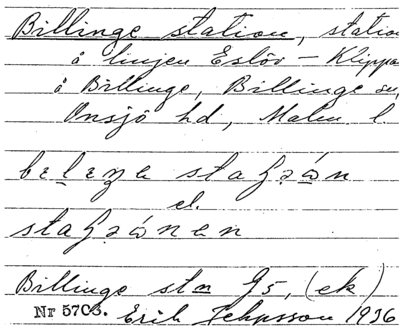 Billinge station, station
å linjen Eslöv – Klippan
å Billinge, Billinge sn,
Onsjö hd, Malm. l.
stahʒɷ́n
el.
stahʒɷ́nen
Billinge stn G5, (ek)
Nr 5703. Erik 1936